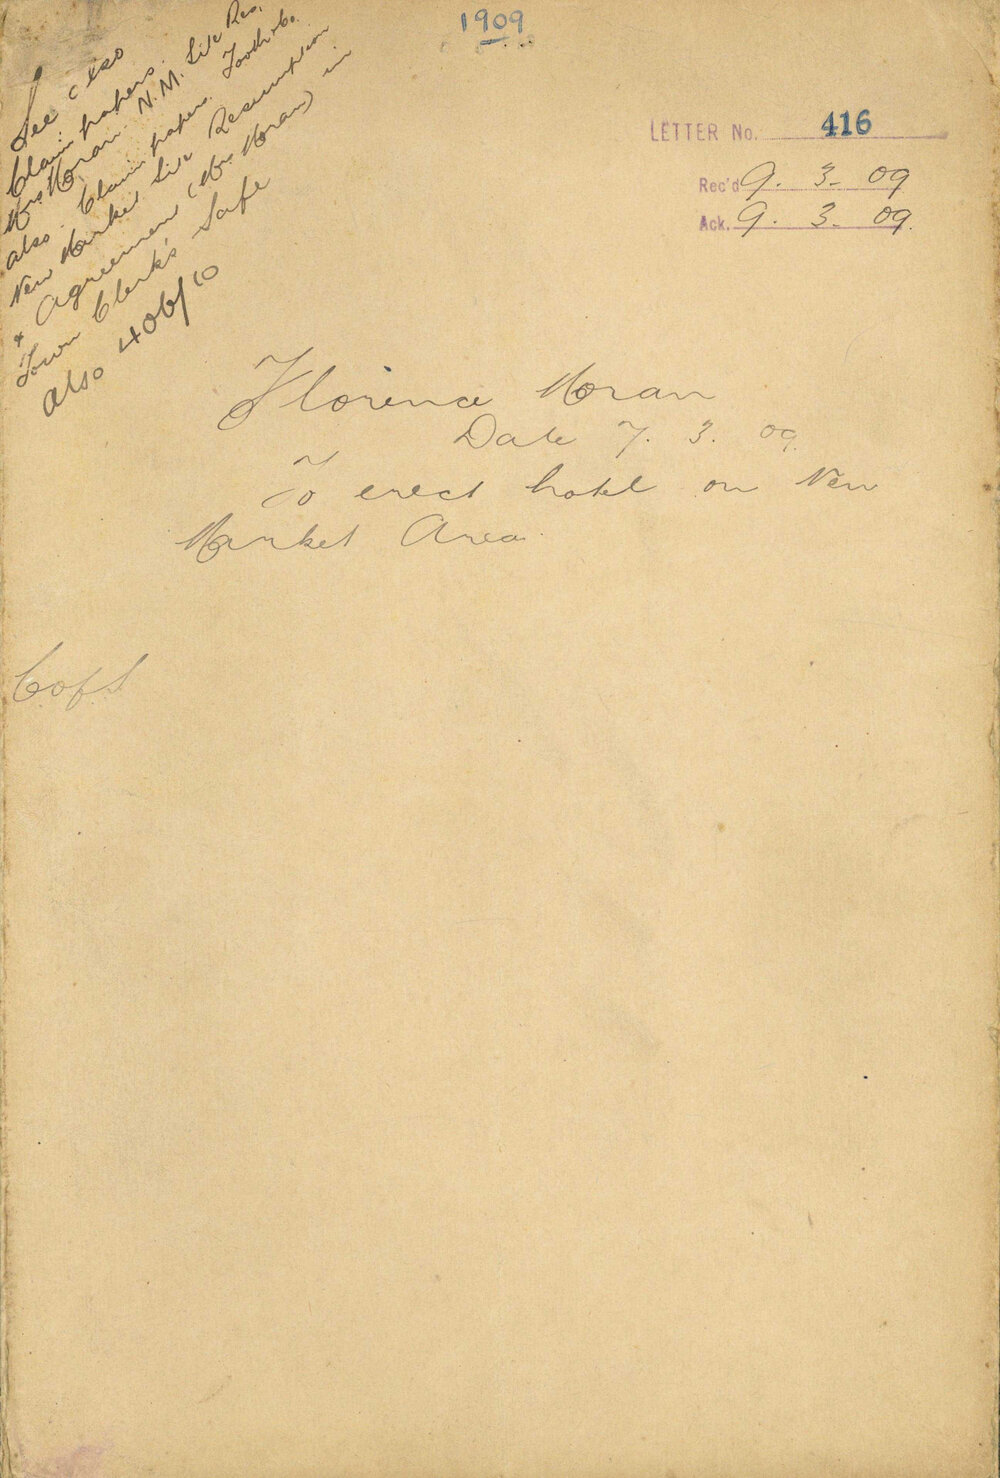 1909
See also
Claim papers.
Mrs Moran. N.M. Site Res.
also. Claim papers. Tooth & Co.
New Market Site Resumption
& Agreement (Mrs Moran) in
Town Clerk's Safe
Also 406/10
LETTER No. 416
Rec'd 9. 3. 09
Ack. 9. 3. 09.
Florence Moran
Date 7. 3. 09.
To erect hotel on New
Market Area.
C of S